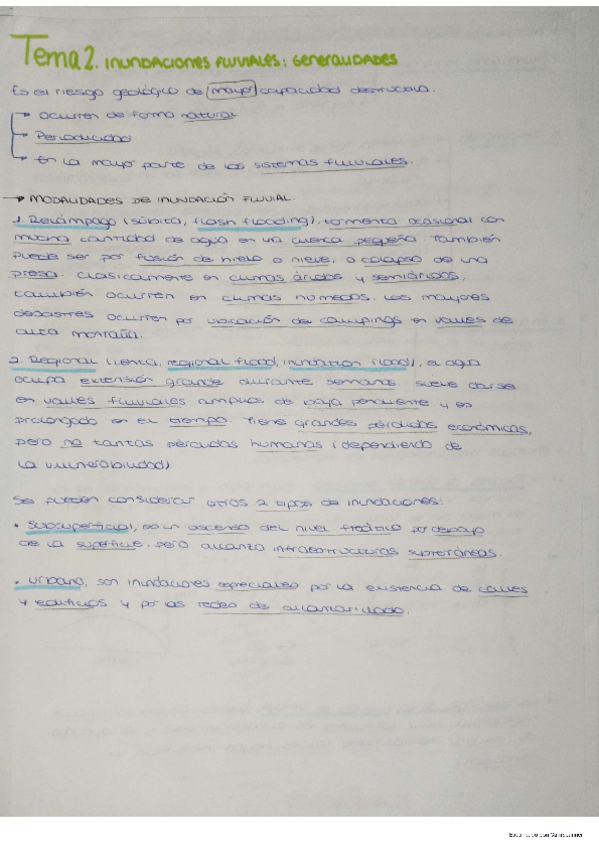 Tema 2. INUNDACIONES FLUVIALES: GENERALIDADES
Es el riesgo geológico de mayor capacidad destructora.
→ Ocurren de forma natural
→ Periodicidad
→ En la mayor parte de los sistemas fluviales.
→ MODALIDADES DE INUNDACIÓN FLUVIAL.
1. Relámpago (súbita, flash flooding), tormenta ocasional con
mucha cantidad de agua en una cuenca pequeña. También
puede ser por fusión de hielo o nieve, o colapso de una
presa. Clásicamente en climas áridos y semiáridos,
también ocurren en climas húmedos. Los mayores
desastres ocurren por ubicación de campings en valles de
alta montaña.
2. Regional (lenta, regional flood, inundation flood), el agua
ocupa extensión grande durante semanas. Suele darse
en valles fluviales amplios de baja pendiente y es
prolongado en el tiempo. Tiene grandes pérdidas económicas,
pero no tantas pérdidas humanas (dependiendo de
la vulnerabilidad)
Se pueden considerar otros 2 tipos de inundaciones:
• Subsuperficial, es un ascenso del nivel freático por debajo
de la superficie, pero alcanza infraestructuras subterráneas.
• Urbana, son inundaciones especiales por la existencia de calles
y edificios y por las redes de alcantarillado.